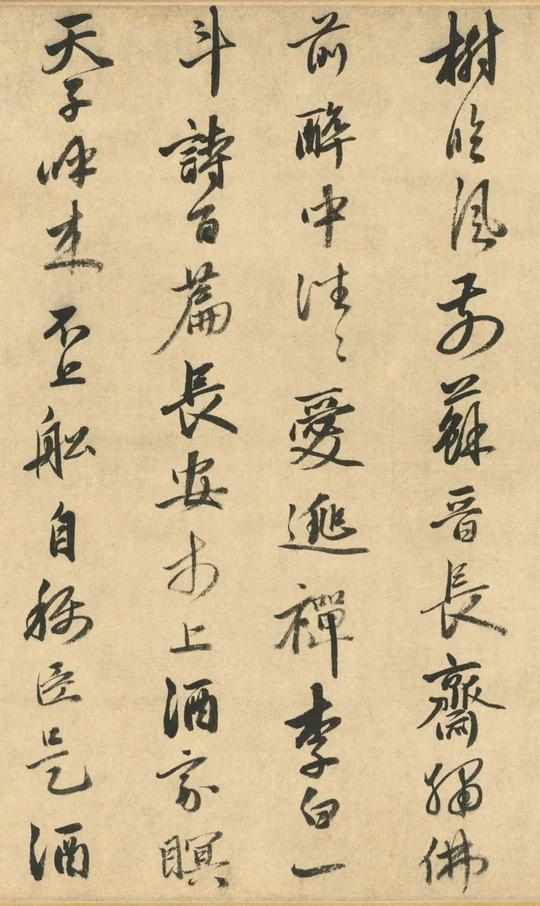 樹臨風前蘇晋長齋繡佛
前醉中往〻愛逃禪李白一
斗詩百篇長安市上酒家瞑
天子呼来不上船自稱臣是酒